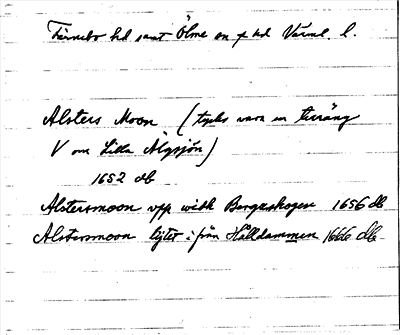 Färnebo hd samt Ölme en f hd Värml. l.
Alsters Moon (tycks vara en terräng
V om Lilla Älgsjön)
1652 db
Alstersmoon upp widh Bergsskogen 1656 db
Alstersmoon lijtet ifrån Hålldammen 1666 db